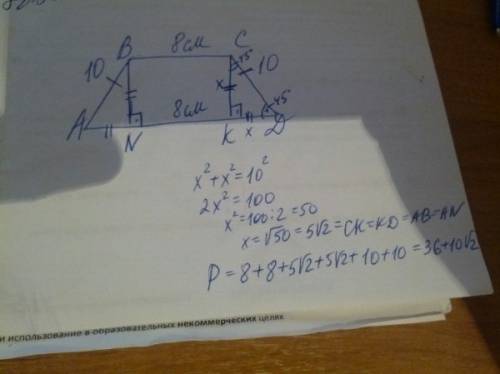 B 8см C
10 45 10
x
45
A 8см
N K x D
x² + x² = 10²
2x² = 100
x² = 100:2 = 50
x = √50 = 5√2 = CK = KD = AB = AN
P = 8 + 8 + 5√2 + 5√2 + 10 + 10 = 36 + 10√2
и использование в образовательных некоммерческих целях